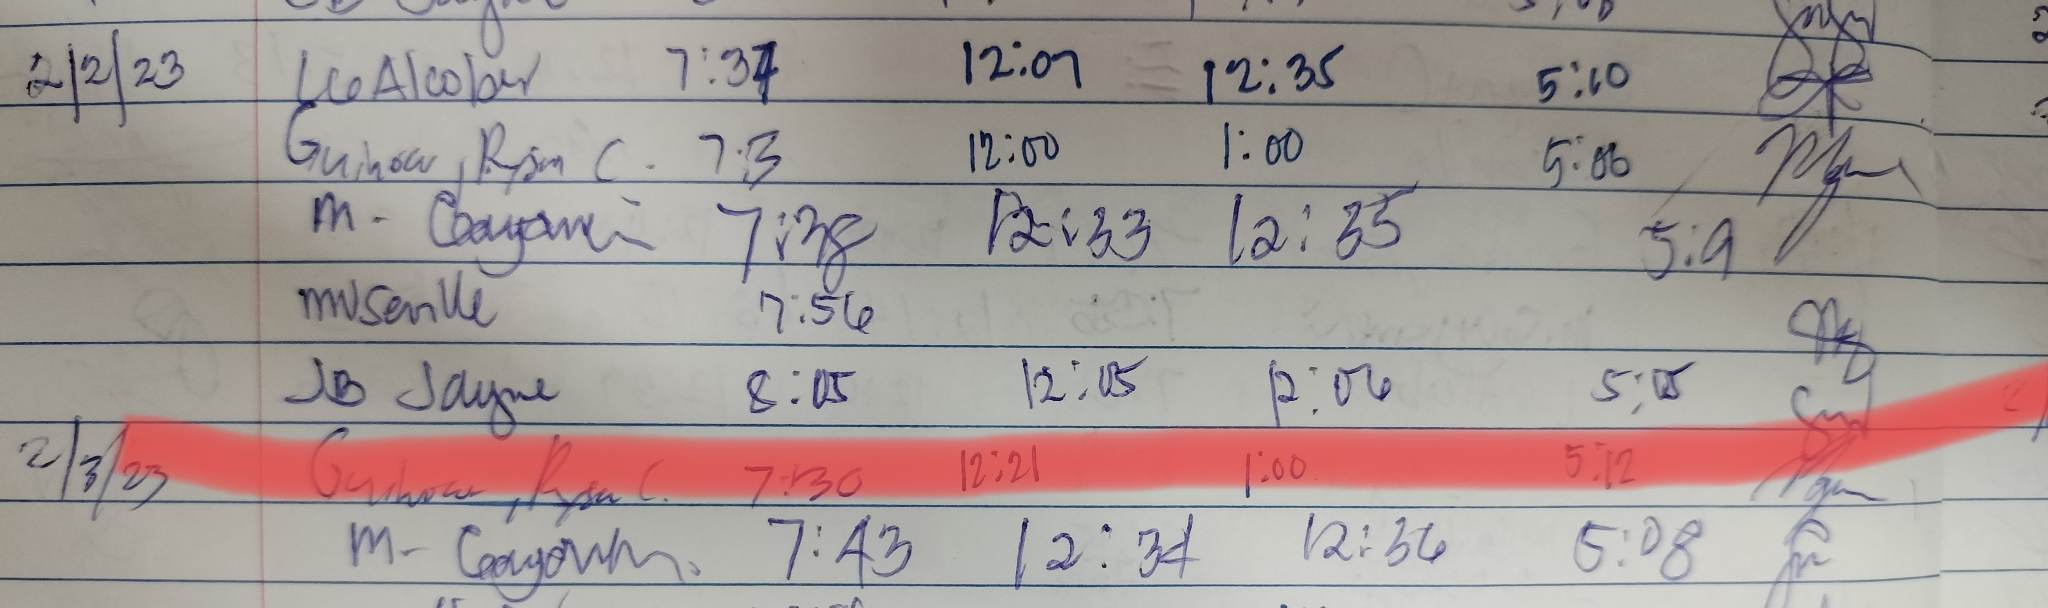 2/2/23 Leo Alcober 7:37 12:07 12:35 5:10
Guinow, Ryan C. 7:3 12:00 1:00 5:00
M- 7:38 12:33 12:35 5:9
MVSeville 7:56
JB Jayne 8:05 12:05 12:06 5:05
2/3/23 Guinow, Ryan C. 7:30 12:21 1:00 5:12
M- 7:43 12:34 12:36 5:08